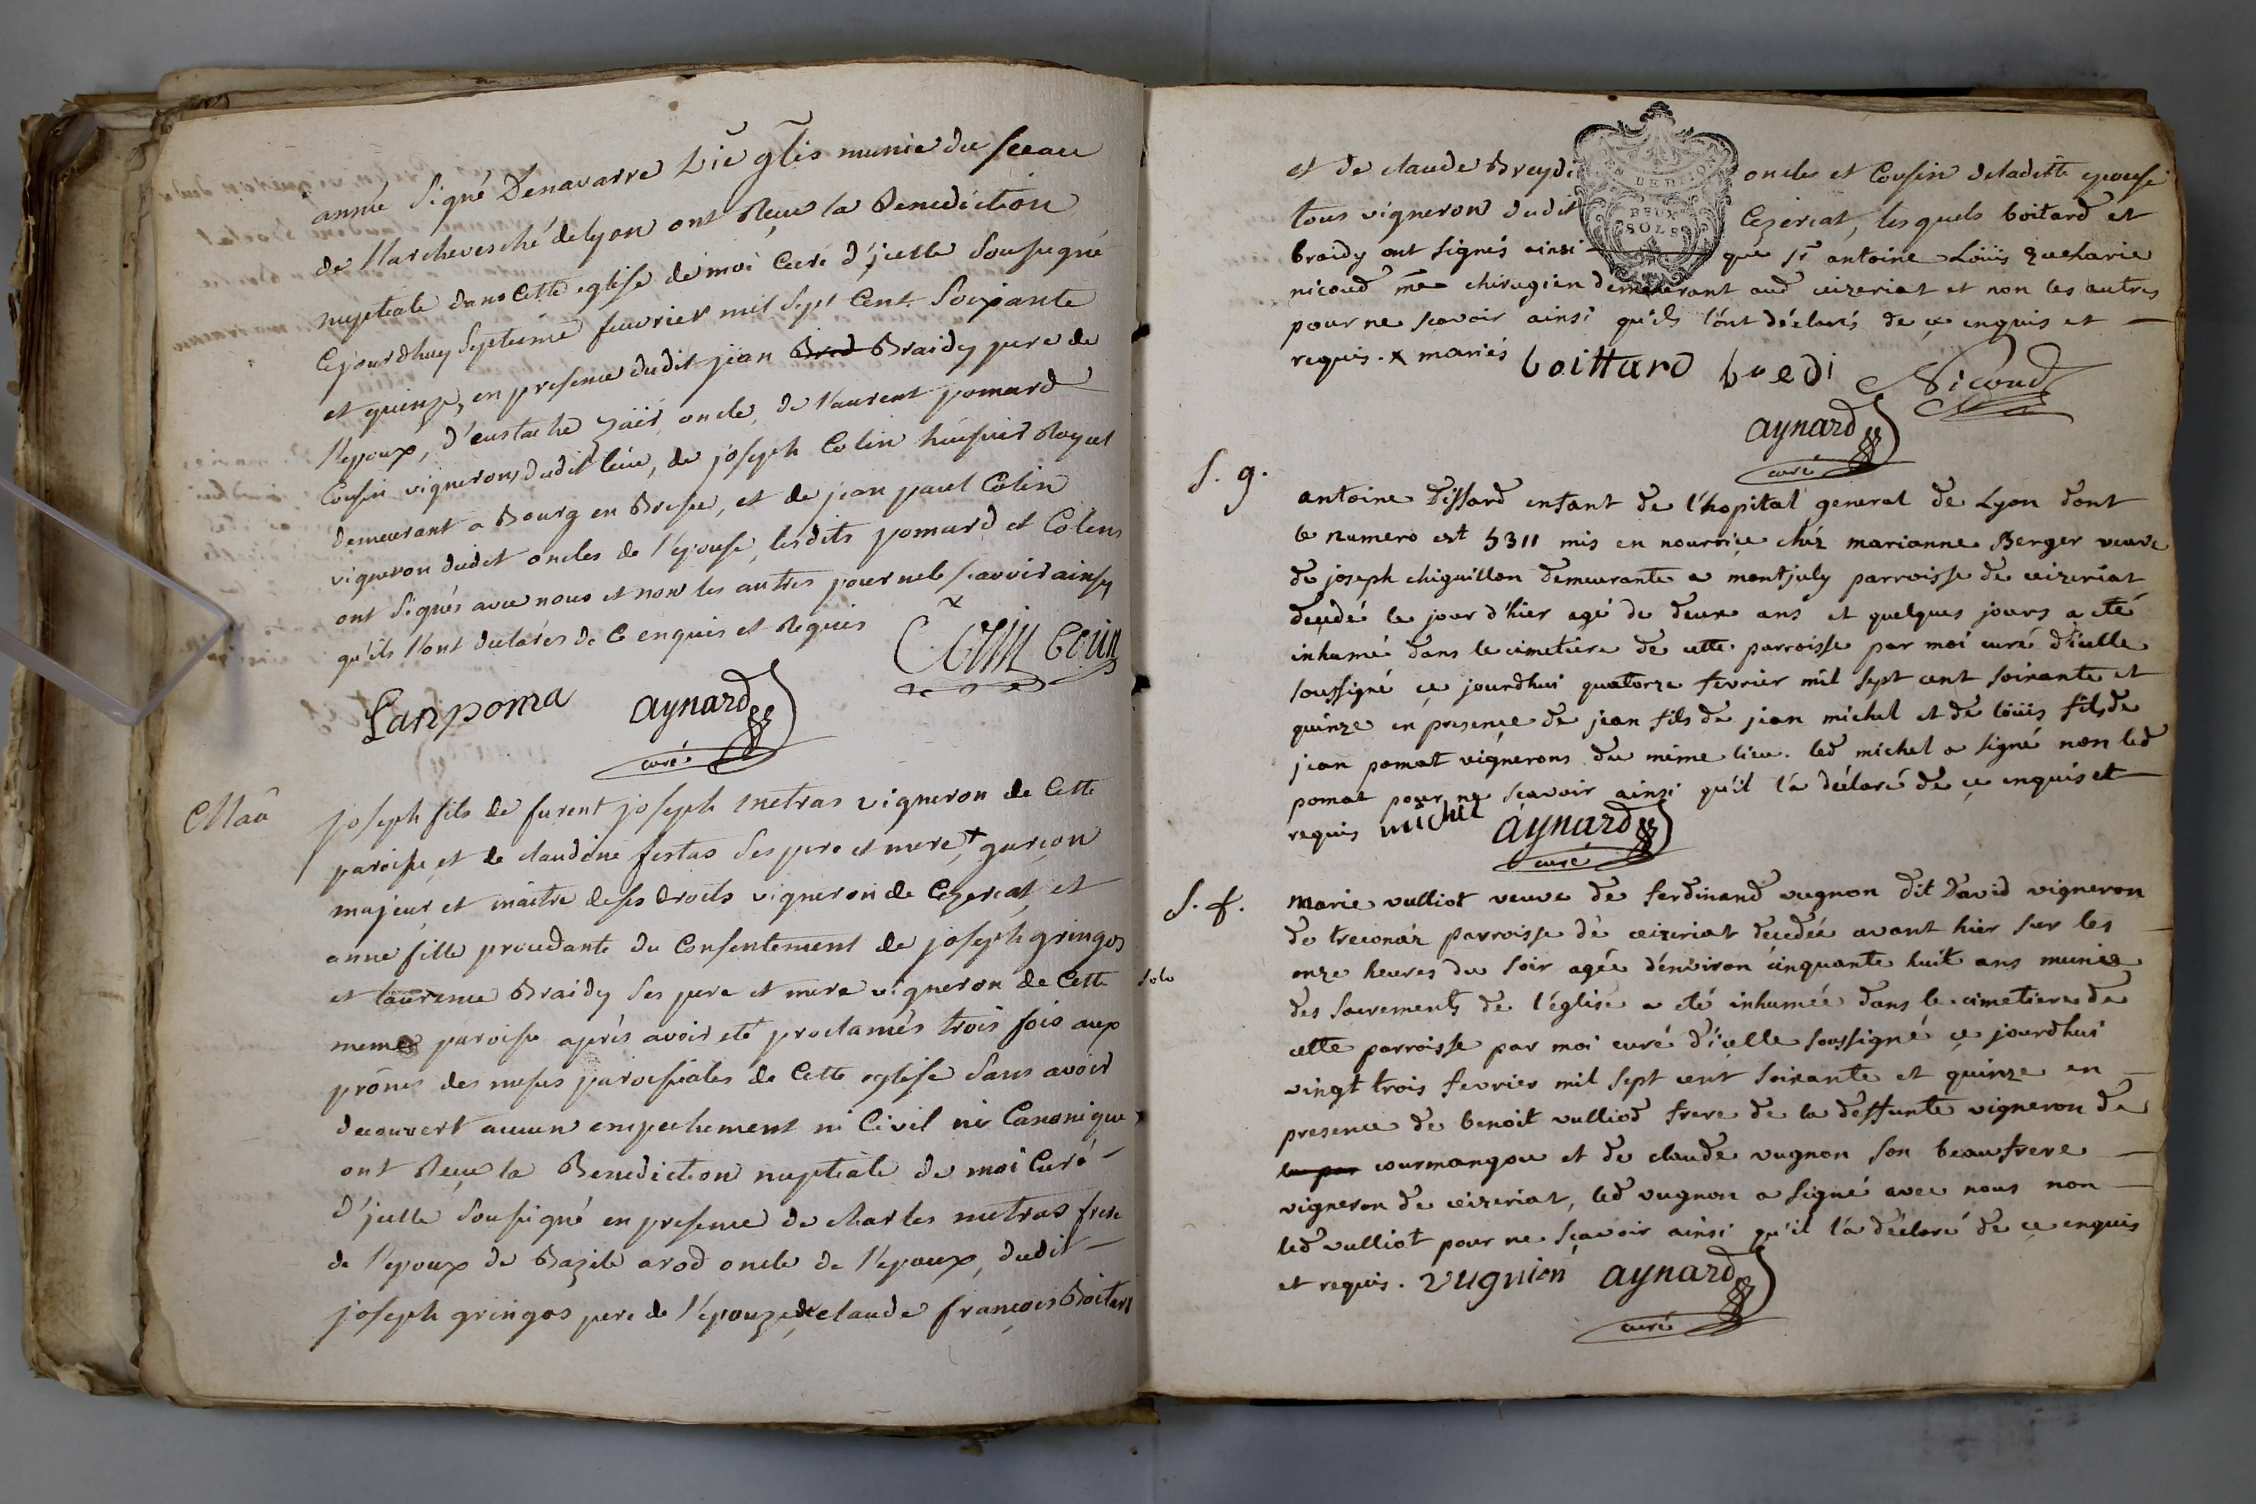 année Signé Denavarre Vic glis munie du sceau
de l'archevesché de lyon ont Reçu la Benediction
nuptiale dans Cette eglise de moi Curé d'jcelle Sousigné
Cejourdhuy Septieme feuvrier mil Sept Cent Soixante
et quinze, en presence dudit jean Braidy pere de
l'epoux, d'eustache oncle, de laurent pomard
Cousin vignerons dudit lieu, de joseph Colin huissier Royal
demeurant a Bourg en Bresse, et de jean paul Colin
vigneron dudit oncles de l'epouse, lesdits pomard et Colins
ont Signés avec nous et non les autres pour ne le scavoir ainsy
qu'ils l'ont déclarés de Ce enquis et Requis
Colin Colin
Lanpoma aynard
curé
Maã
joseph fils de furent joseph metras vigneron de Cette
paroisse et de claudine festas Ses pere et mere + garçon
majeur et maitre de ses droits vigneron de Cezeriat, et
anne fille procedante du Consentement de joseph gringos
et laurence Braidy Ses pere et mere vigneron de Cette
meme paroisse après avoir eté proclamés trois fois aux
prônes des messes paroissiales de Cette eglise Sans avoir
decouvert aucun empechement ni Civil ni Canonique
ont Reçu la Benediction nuptiale de moi Curé
d'jcelle Sousigné en presence de charles metras frere
de l'epoux de Bazile arod oncle de l'epoux, dudit
joseph gringos pere de l'epouze, de claude françois Boitard
et de claude Breydi oncles et Cousin deladitte epouse
tous vigneron dudit Cezeriat, lesquels boitard et
braidy ont signés ainsi que sr antoine Loüis zacharie
nicoud me chirugien demeurant aud ceizeriat et non les autres
pour ne scavoir ainsi qu'ils l'ont déclarés de ce enquis et
requis. x mariés boittard bredi Nicoud
aynard
curé
DEUX
SOLS
S. g.
antoine Tissard enfant de l'hopital general de Lyon dont
le numero est 5311 mis en nourrice chéz marianne Berger veuve
de joseph chiquillon demeurante a montjuly parroisse de ceizeriat
decedé le jour d'hier agé de deux ans et quelques jours a eté
inhumé dans le cimetiere de cette parroisse par moi curé d'icelle
soussigné ce jourdhui quatorze fevrier mil sept cent soixante et
quinze en presence de jean fils de jean michel et de loüis fils de
jean pomat vignerons du même lieu. led michel a signé non led
pomat pour ne sçavoir ainsi qu'il l'a déclaré de ce enquis et
requis michel aynard
curé
S. f.
Marie vulliot veuve de ferdinand vugnon dit David vigneron
de treconaz parroisse de ceizeriat decedée avant hier sur les
onze heures du soir agée d'environ cinquante huit ans munie
des sacrements de l'église a eté inhumée dans le cimetiere de
cette parroisse par moi curé d'icelle soussigné ce jourdhui
vingt trois fevrier mil sept cent soixante et quinze en
presence de benoit vulliod frere de la deffunte vigneron de
la par courmangou et de claude vugnon son beaufrere
vigneron de ceizeriat, led vugnon a signé avec nous non
led vulliot pour ne sçavoir ainsi qu'il l'a déclaré de ce enquis
et requis. vugnion aynard
curé